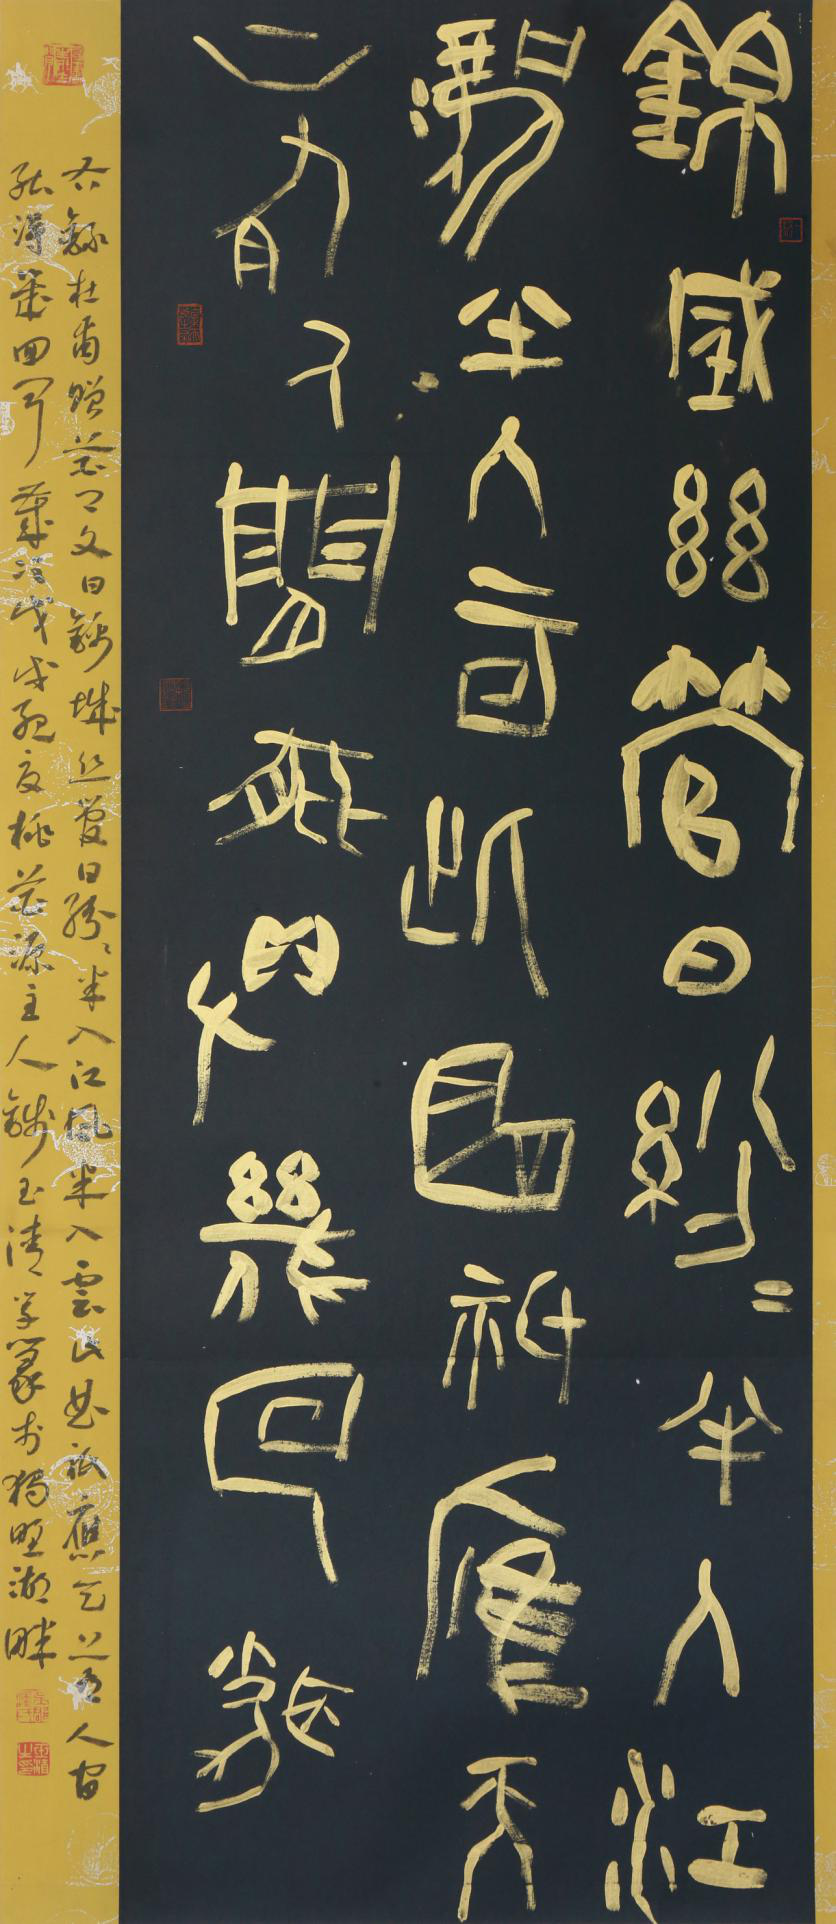 錦城絲管日紛〻半入江
風半入雲此曲祇應天
上有人間能得幾回聞
右錄杜甫贈花卿文曰錦城丝管日紛〻半入江風半入雲此曲祇應天上有人间
能得幾回聞歲次戊戌夏桃花源主人錢玉清學篆於獨墅湖畔